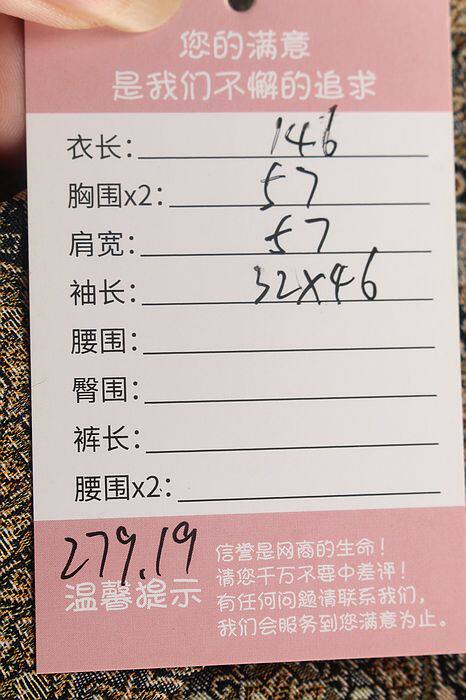 您的满意
是我们不懈的追求
衣长: 146
胸围x2: 57
肩宽: 57
袖长: 32x46
腰围:
臀围:
裤长:
腰围x2:
279.19
温馨提示
信誉是网商的生命!
请您千万不要中差评!
有任何问题请联系我们,
我们会服务到您满意为止。